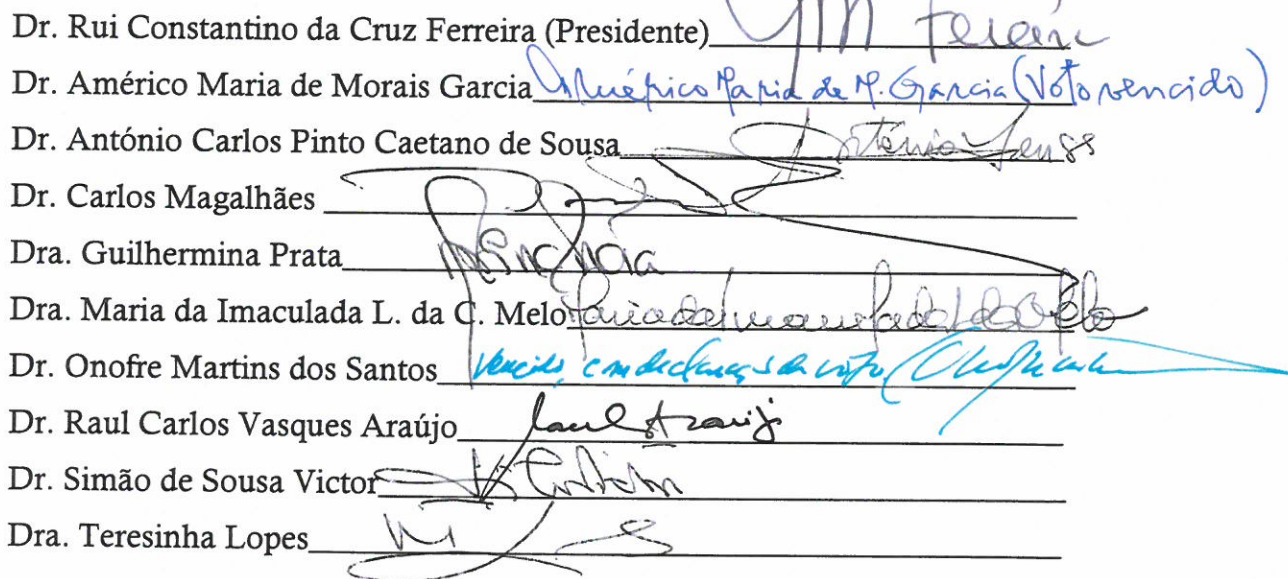 Dr. Rui Constantino da Cruz Ferreira (Presidente) Ferreira
Dr. Américo Maria de Morais Garcia Américo Maria de M. Garcia (Voto vencido)
Dr. António Carlos Pinto Caetano de Sousa António
Dr. Carlos Magalhães
Dra. Guilhermina Prata
Dra. Maria da Imaculada L. da C. Melo Maria da Imaculada L. da C. Melo
Dr. Onofre Martins dos Santos Vencido, com declaração de voto
Dr. Raul Carlos Vasques Araújo Raul Araújo
Dr. Simão de Sousa Victor
Dra. Teresinha Lopes